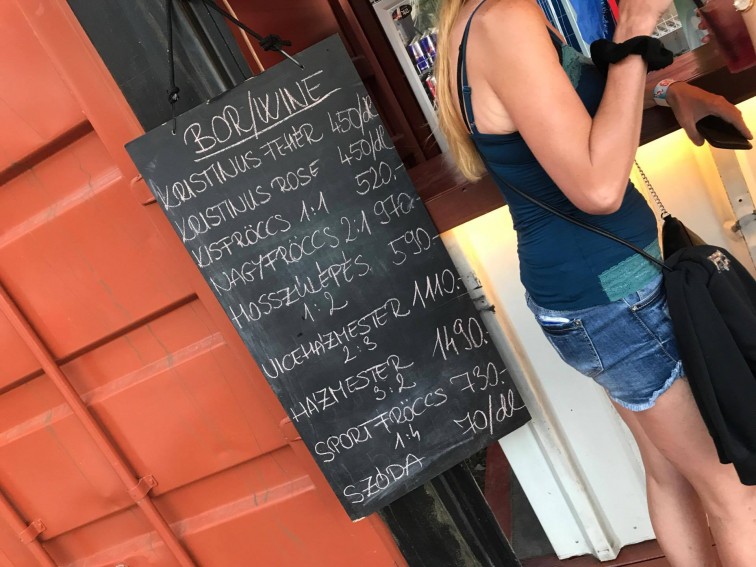 BOR/WINE
KRISTINUS FEHÉR 450/dl
KRISTINUS ROSE 450/dl
KISFRÖCCS 1:1 520.-
NAGYFRÖCCS 2:1 970.-
HOSSZÚLÉPÉS 590.-
1:2
VICEHAZMESTER 1110.-
2:3
HAZMESTER 1490.-
3:2
SPORTFRÖCCS 730.-
1:4
SZÓDA 70/dl